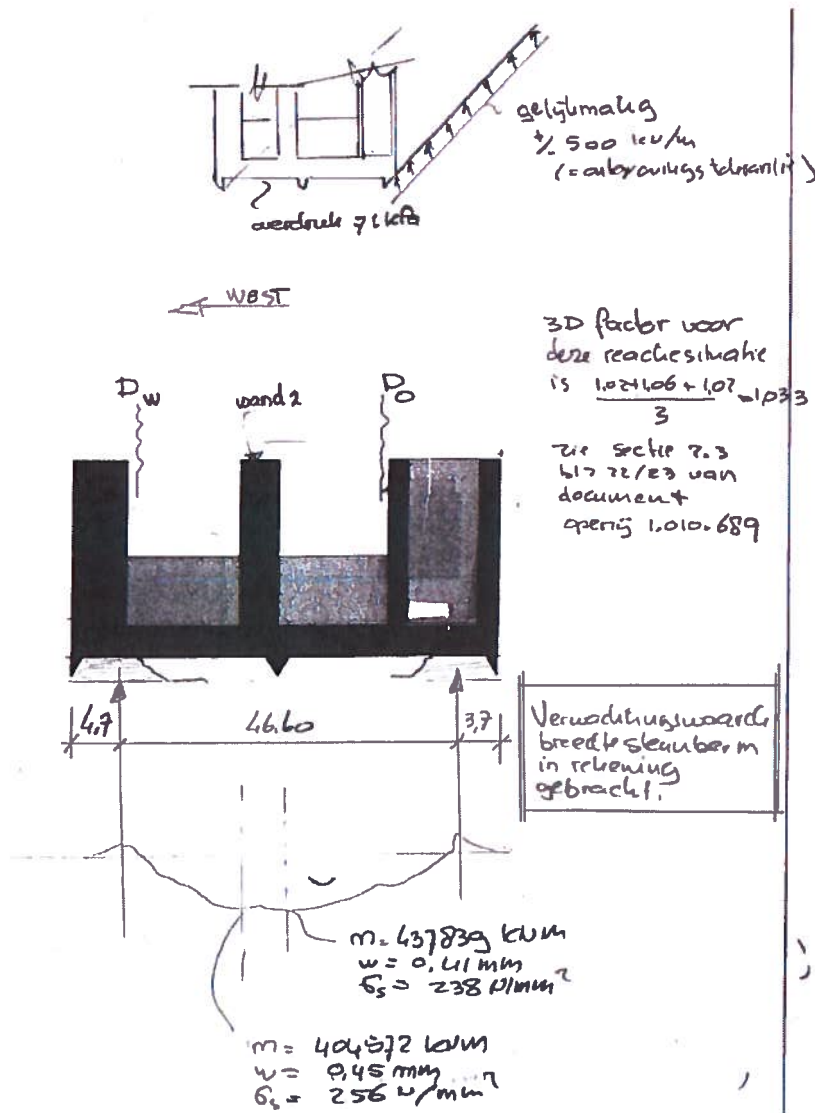 gelijkmatig
+/- 500 kN/m
overdruk 71 kPa
WEST
D W
wand 2
D O
3D factor voor
deze reactiesituatie
is 1,02+1,06+1,02 / 3 = 1,033
zie sectie 2.3
blz 22/23 van
document
1.010.689
4,7
46.60
3,7
Verwachtingswaarde
breedte steunberm
in rekening
gebracht.
m = 437839 kNm
w = 0,41 mm
σs = 238 N/mm²
m = 404572 kNm
w = 0,45 mm
σs = 256 N/mm²